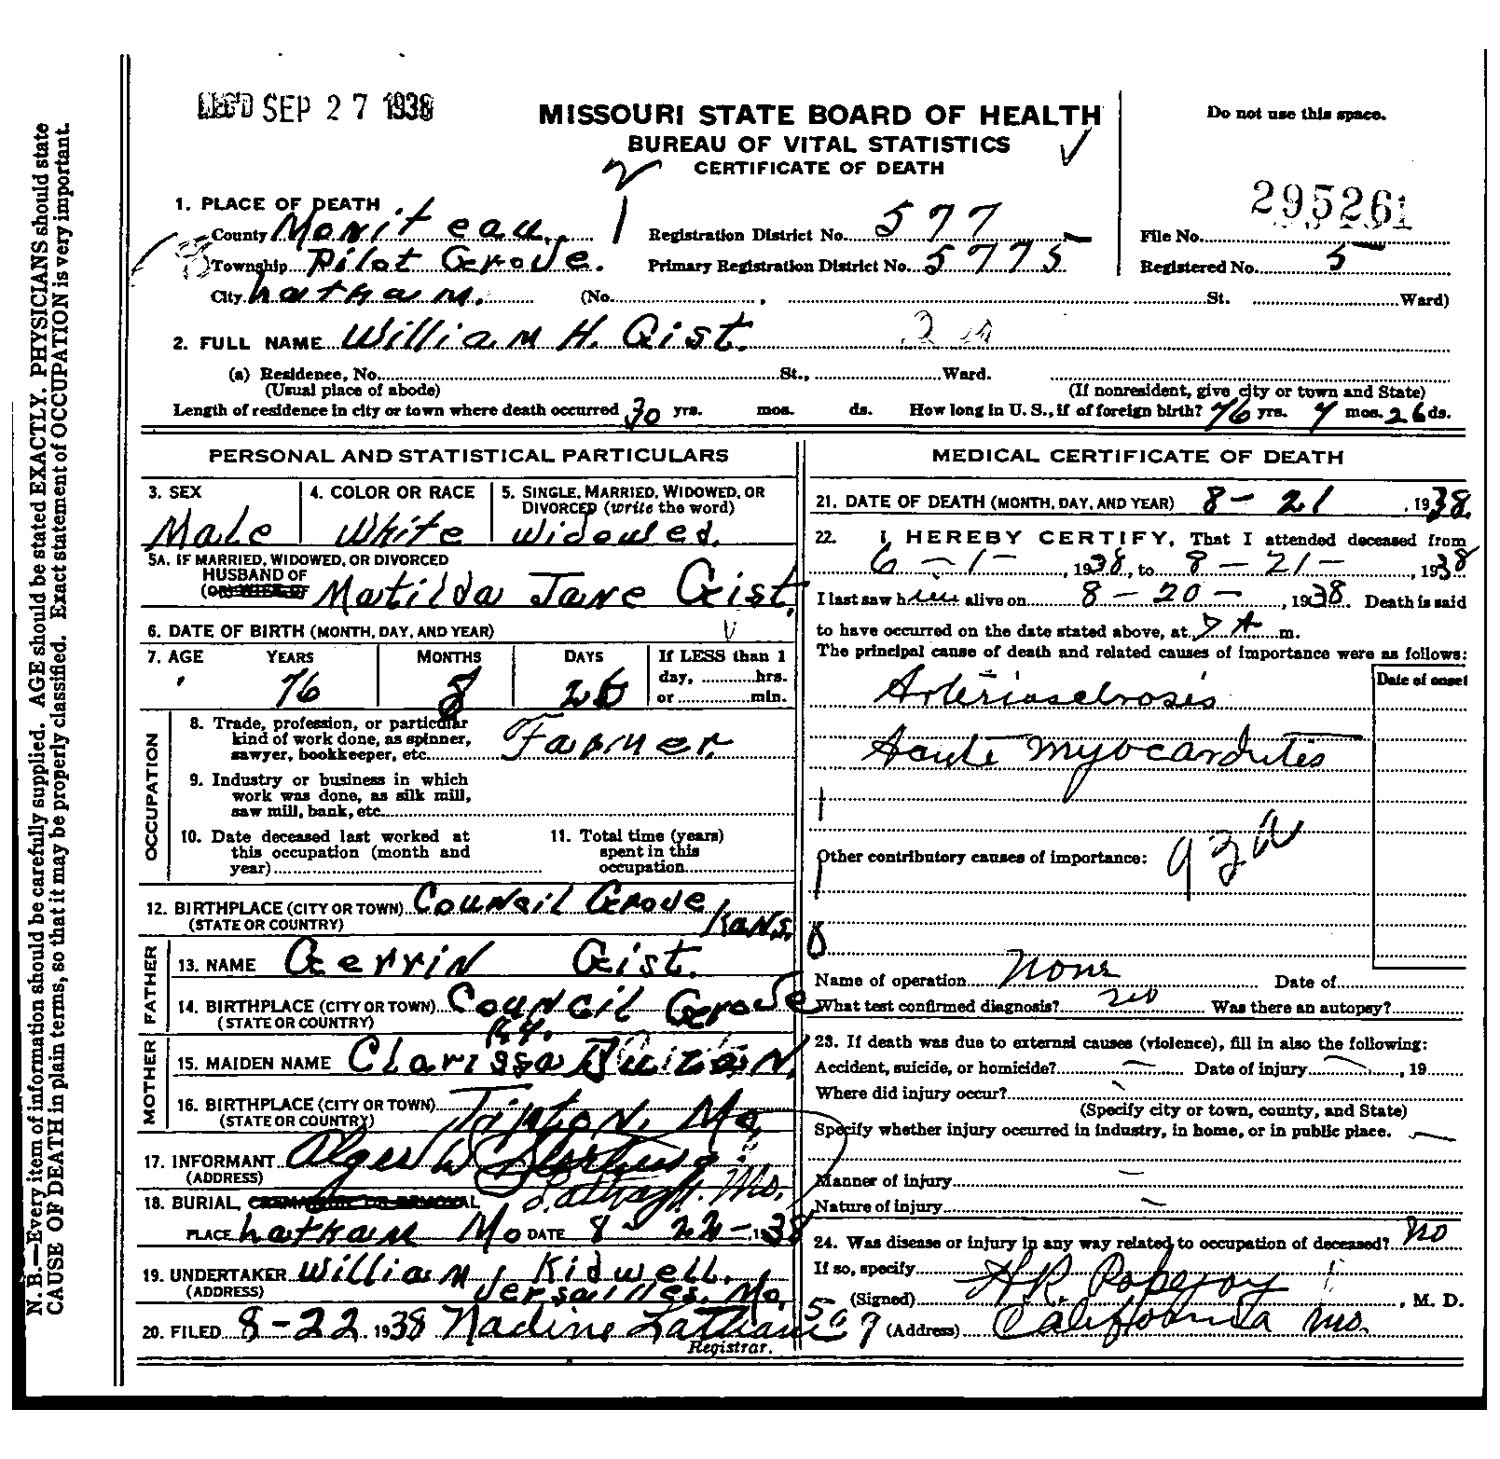 REC'D SEP 27 1938
MISSOURI STATE BOARD OF HEALTH
BUREAU OF VITAL STATISTICS
CERTIFICATE OF DEATH
Do not use this space.
295261
2
1. PLACE OF DEATH
County Moniteau 1 Registration District No. 577 File No.
Township Pilot Grove. Primary Registration District No. 5775 Registered No. 5
City Latham. (No. , St. Ward)
2. FULL NAME William H. Gist.
(a) Residence, No. St., Ward.
(Usual place of abode) (If nonresident, give city or town and State)
Length of residence in city or town where death occurred 30 yrs. mos. ds. How long in U. S., if of foreign birth? 76 yrs. mos. 26 ds.
PERSONAL AND STATISTICAL PARTICULARS
3. SEX 4. COLOR OR RACE 5. SINGLE, MARRIED, WIDOWED, OR
DIVORCED (write the word)
Male White Widowed.
5A. IF MARRIED, WIDOWED, OR DIVORCED
HUSBAND OF
(OR WIFE OF Matilda Jane Gist.
6. DATE OF BIRTH (MONTH, DAY, AND YEAR)
7. AGE YEARS MONTHS DAYS If LESS than 1
day, hrs.
or min.
76 8 26
OCCUPATION
8. Trade, profession, or particular
kind of work done, as spinner,
sawyer, bookkeeper, etc. Farmer
9. Industry or business in which
work was done, as silk mill,
saw mill, bank, etc.
10. Date deceased last worked at
this occupation (month and
year)
11. Total time (years)
spent in this
occupation
12. BIRTHPLACE (CITY OR TOWN) Council Grove
(STATE OR COUNTRY) Kans.
FATHER
13. NAME Gerrin Gist.
14. BIRTHPLACE (CITY OR TOWN) Council Grove
(STATE OR COUNTRY)
MOTHER
15. MAIDEN NAME Clarissa
16. BIRTHPLACE (CITY OR TOWN) Tipton, Mo
(STATE OR COUNTRY)
17. INFORMANT
(ADDRESS) Latham. Mo.
18. BURIAL, CREMATION OR REMOVAL
PLACE Latham Mo DATE 8-22-1938
19. UNDERTAKER William J Kidwell.
(ADDRESS) Versailles, Mo.
20. FILED 8-22 1938 Nadine Latham
Registrar.
MEDICAL CERTIFICATE OF DEATH
21. DATE OF DEATH (MONTH, DAY, AND YEAR) 8-21 , 1938.
22. I HEREBY CERTIFY, That I attended deceased from
6-1- , 1938, to 8-21- , 1938
I last saw him alive on 8-20- , 1938. Death is said
to have occurred on the date stated above, at m.
The principal cause of death and related causes of importance were as follows:
Date of onset
Arteriosclrosis
Acute myocarditis
Other contributory causes of importance: 93a
Name of operation None Date of
What test confirmed diagnosis? no Was there an autopsy?
23. If death was due to external causes (violence), fill in also the following:
Accident, suicide, or homicide? Date of injury , 19
Where did injury occur?
(Specify city or town, county, and State)
Specify whether injury occurred in industry, in home, or in public place.
Manner of injury
Nature of injury
24. Was disease or injury in any way related to occupation of deceased? No
If so, specify
(Signed) , M. D.
509 (Address) California Mo.
N. B.—Every item of information should be carefully supplied. AGE should be stated EXACTLY. PHYSICIANS should state
CAUSE OF DEATH in plain terms, so that it may be properly classified. Exact statement of OCCUPATION is very important.